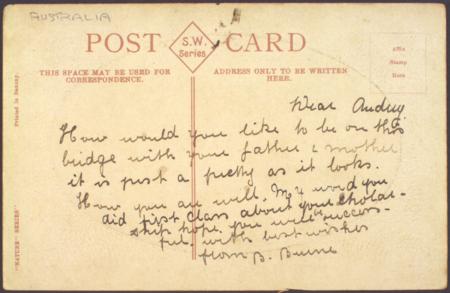 AUSTRALIA
POST CARD
S.W.
Series
THIS SPACE MAY BE USED FOR
CORRESPONDENCE.
ADDRESS ONLY TO BE WRITTEN
HERE.
Affix
Stamp
Here
Printed in Saxony.
"NATURE" SERIES
Dear Audrey
How would you like to be on this
bridge with your father & mother
it is just a pretty as it looks.
How you are well. My word you
did first class about your scholar-
ship hope you will be success-
ful. with best wishes
from B.